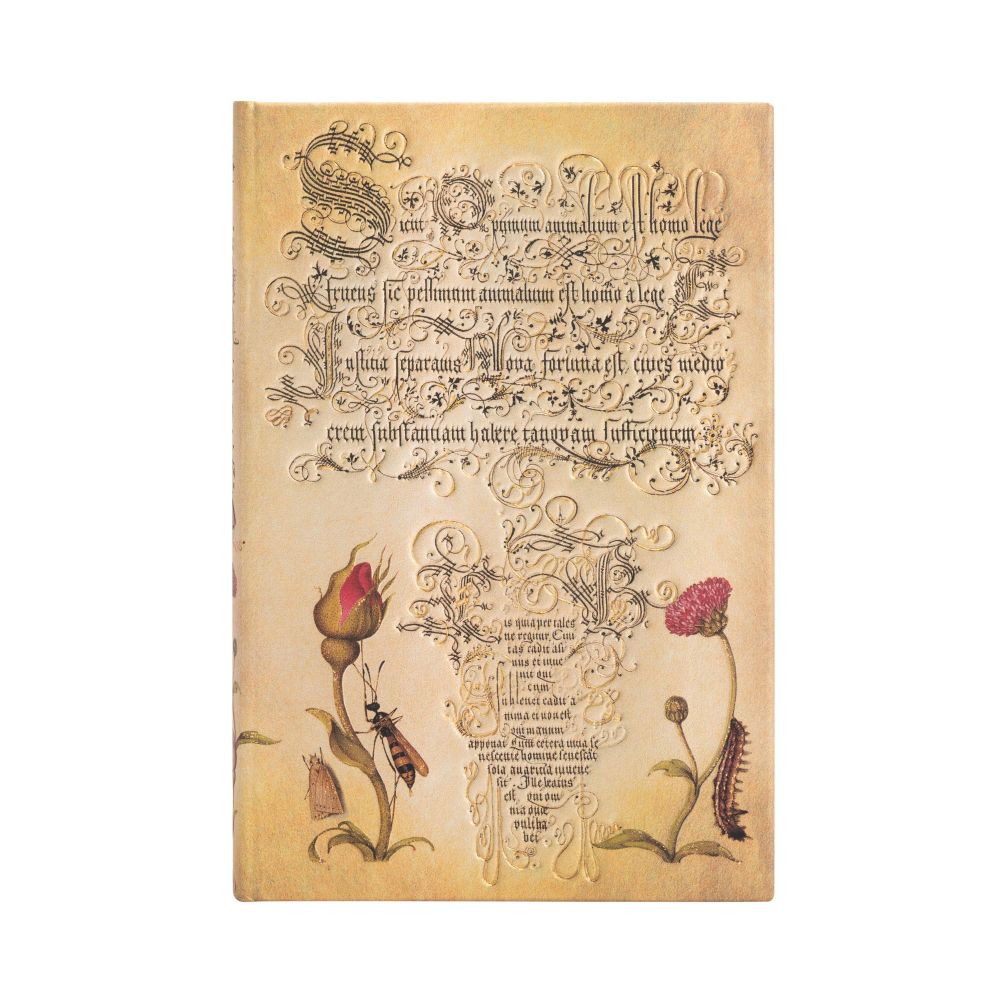 Sicut Optimum animalium est homo lege
fruens sic pessimum animalium est homo a lege E
Iustitia separatus Nova fortuna est, cives medio
crem substantiam habere tanquam sufficientem
is quia per tales
ne regitur, Civi
tas cadit asi
nus et inve
nit qui
eum
sublevet cadit a
nima et non est
qui manum
apponat Cum cetera vitia se
nescente homine senescat
sola avaritia iuvene
sit. Ille beatus
est qui om
nia quae
vult ha
bet